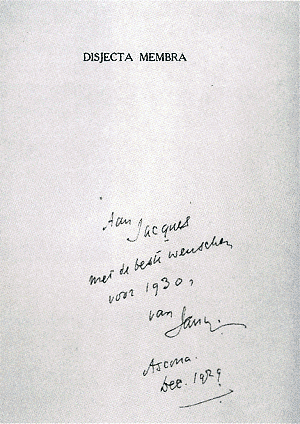 DISJECTA MEMBRA
Aan Jacques
met de beste wenschen
voor 1930,
van
Ascona.
Dec. 1929